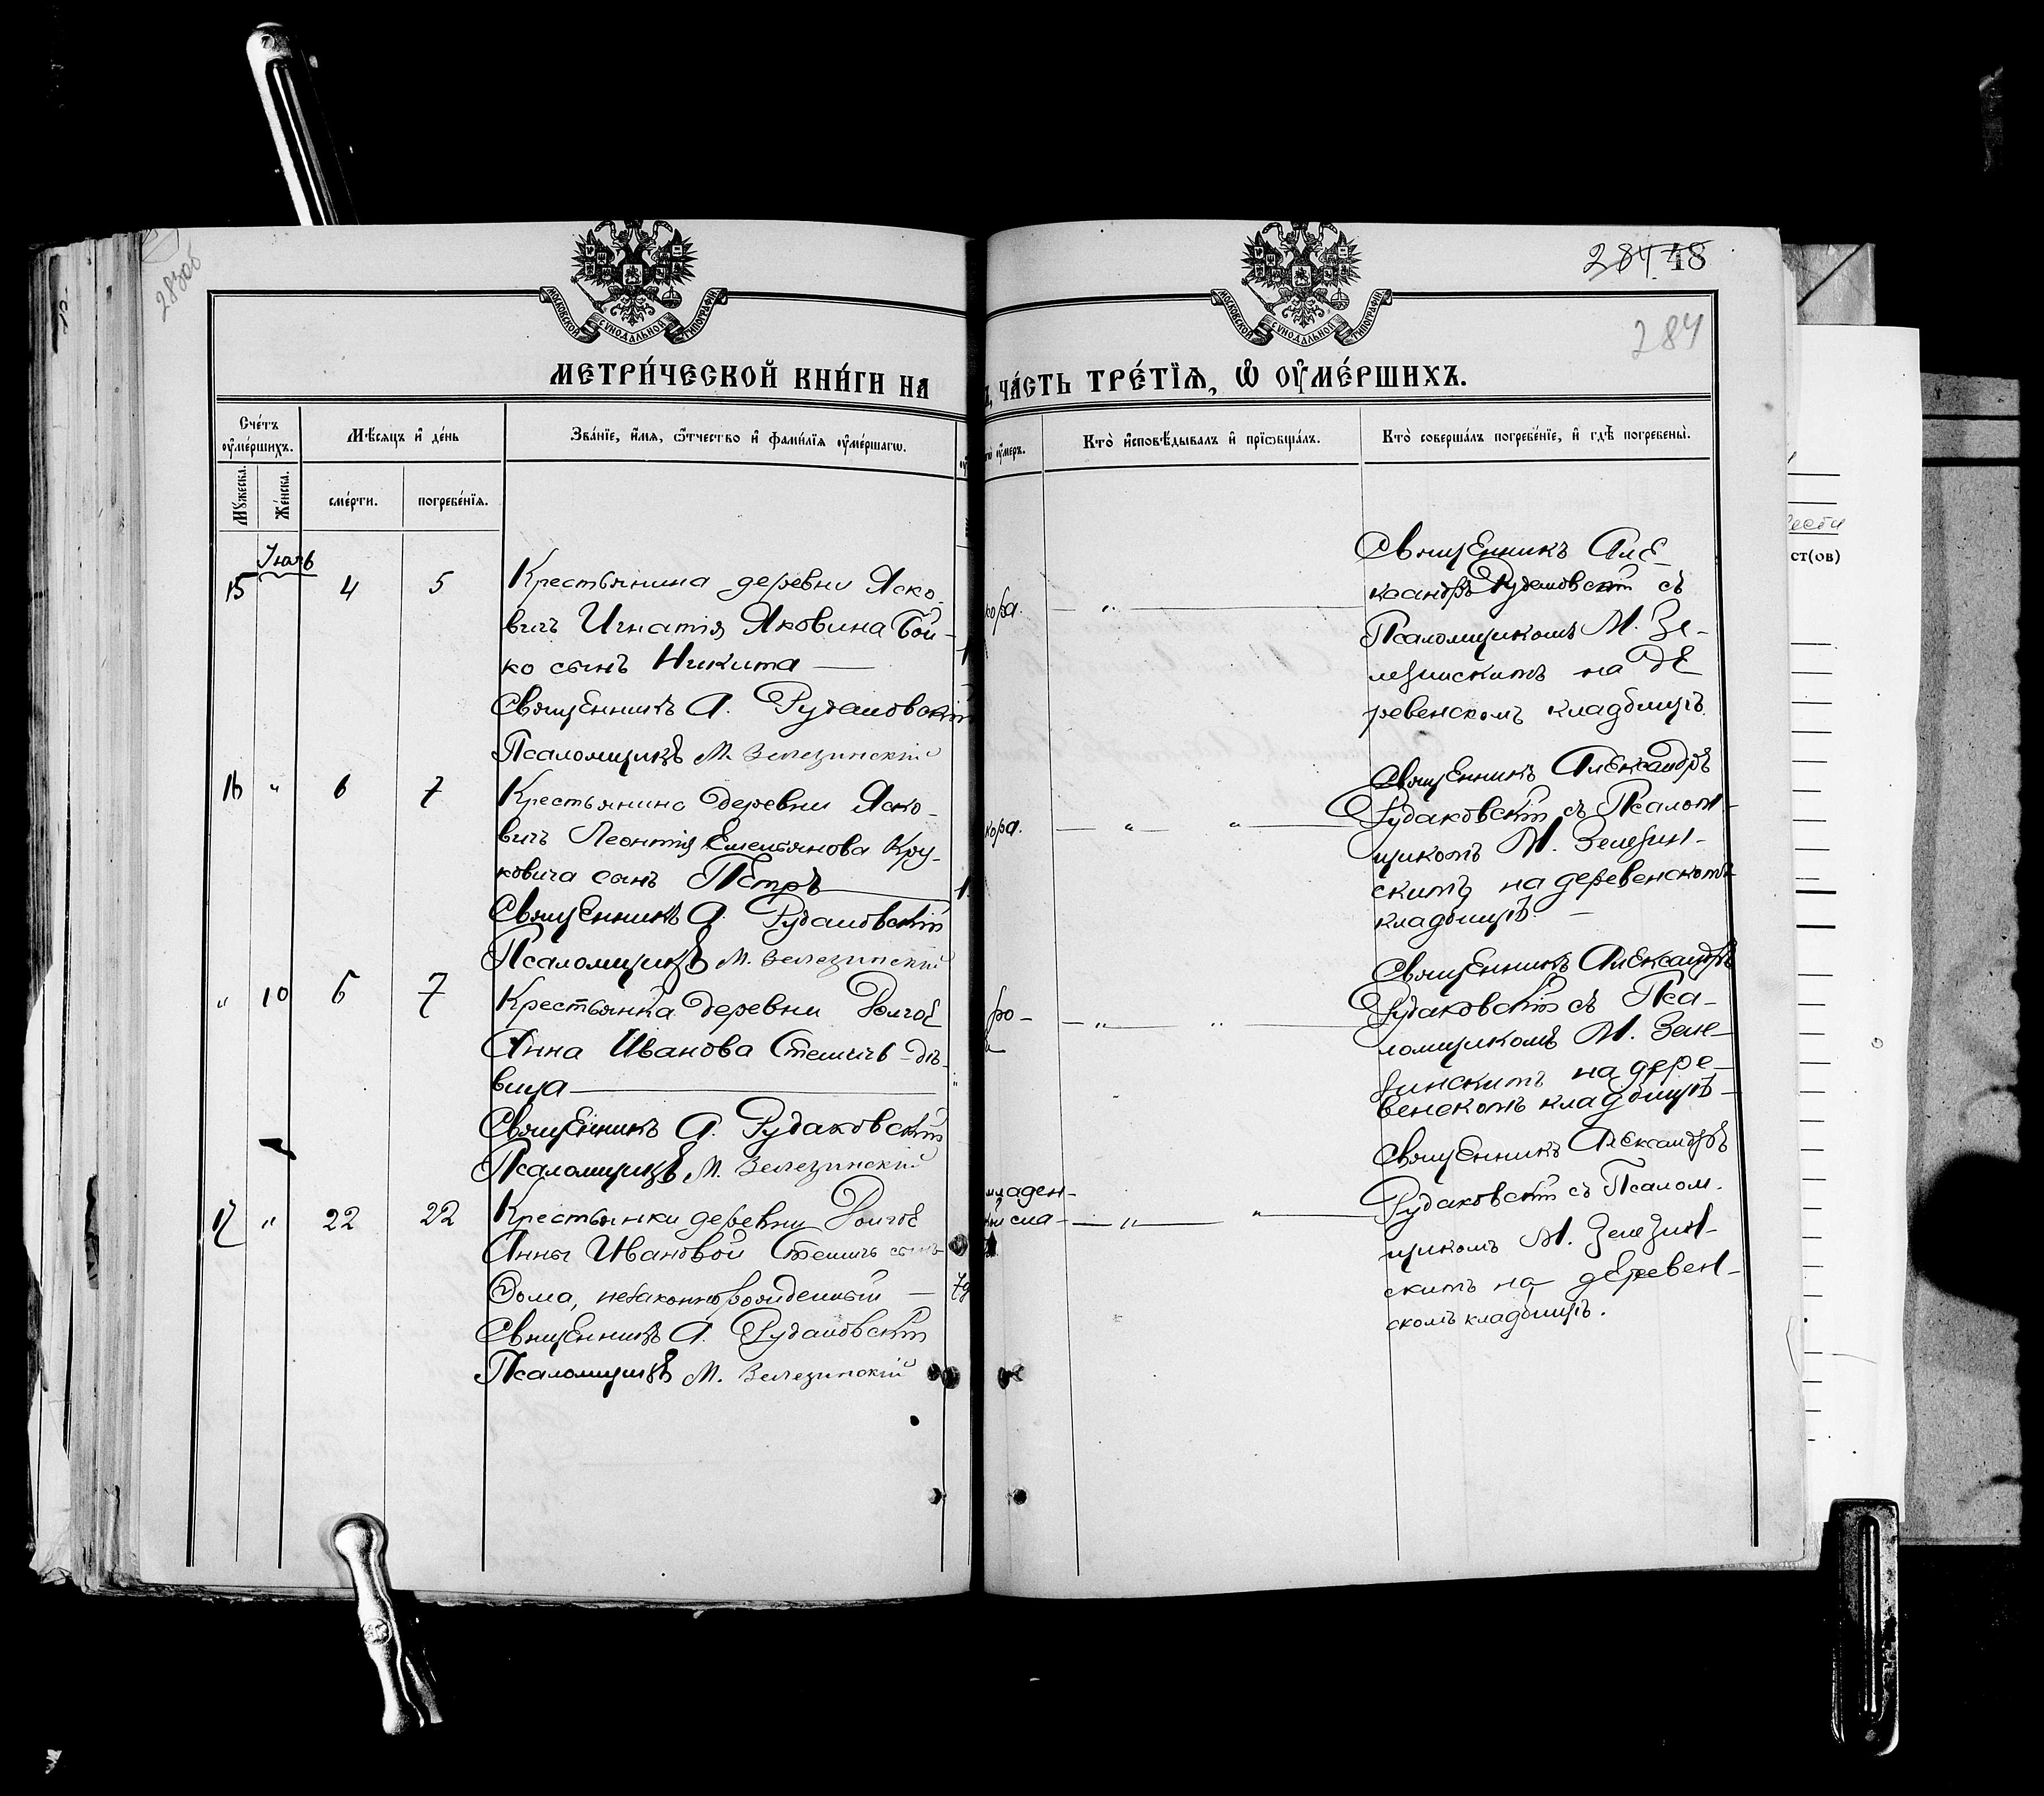 283об
284 48
284
МОСКОВСКОЙ СУНОДАЛЬНОЙ ТИПОГРАФІИ
МОСКОВСКОЙ СУНОДАЛЬНОЙ ТИПОГРАФІИ
МЕТРИ́ЧЕСКОЙ КНИ́ГИ НА
Ъ, ЧА́СТЬ ТРЕ́ТЇѦ, Ѡ ОУ҆МЕ́РШИХЪ.
Сче́тъ оу҆ме́ршихъ.
Мꙋ́жеска.
Же́нска.
Мѣ́сяцъ и҆ де́нь
сме́рти.
погребе́нїѧ.
Зва́нїе, и҆́мѧ, ѻ҆́тчество и҆ фами́лїѧ оу҆ме́ршагѡ.
оу҆ме́ръ.
Кто̀ и҆сповѣ́дывалъ и҆ прїѡбща́лъ.
Кто̀ соверша́лъ погребе́нїе, и҆ гдѣ̀ погребены̀.
Іюль
15 4 5
Крестьянина деревни Яско-
вичъ Игнатія Яковина Бой-
ко сынъ Никита
Священникъ А. Рудаковскій
Псаломщикъ М. Зелезинскій
кора. „
Священникъ Але-
ксандръ Рудаковскій съ
Псаломщикомъ М. Зе-
лезинскимъ на де
ревенскомъ кладбищѣ.
16 „ 6 7
Крестьянина деревни Яско-
вичъ Леонтія Емельянова Кру-
ковича сынъ Петръ
Священникъ А. Рудаковскій
Псаломщикъ М. Зелезинскій
кора. „ „
Священникъ Александръ
Рудаковскій съ Псалом-
щикомъ М. Зелезин-
скимъ на деревенскомъ
кладбищѣ.
„ 10 6 7
Крестьянка деревни Долгое
Анна Иванова Стешичъ дѣ-
вица
Священникъ А. Рудаковскій
Псаломщикъ М. Зелезинскій
ро- „ „
Священникъ Александръ
Рудаковскій съ Пса-
ломщикомъ М. Зеле-
зинскимъ на дере-
венскомъ кладбищѣ
17 „ 22 22
Крестьянки деревни Долгое
Анны Ивановой Стешичъ сынъ
Ѳома, незаконнорожденный
Священникъ А. Рудаковскій
Псаломщикъ М. Зелезинскій
младен-
ной сла- „ „
Священникъ Александръ
Рудаковскій съ Псалом-
щикомъ М. Зелезин-
скимъ на деревен-
скомъ кладбищѣ.
ст(ов)